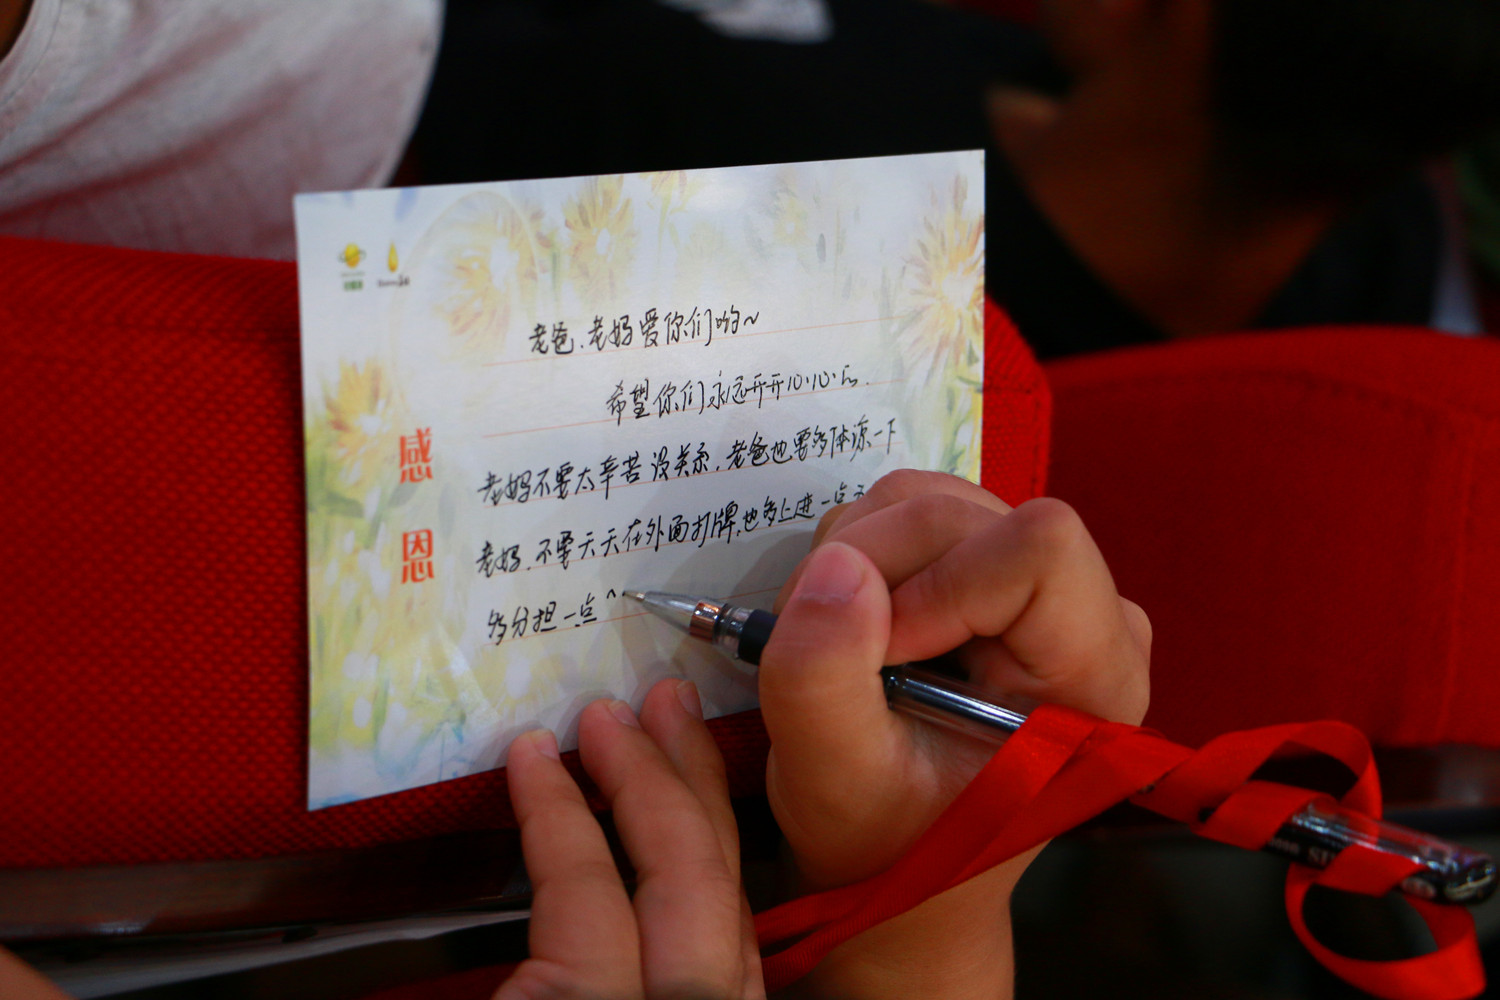 感恩
老爸、老妈爱你们哟~
希望你们永远开开心心。
老妈不要太辛苦没关系,老爸也要多体凉一下
老妈,不要天天在外面打牌,也多上进一点
多分担一点^